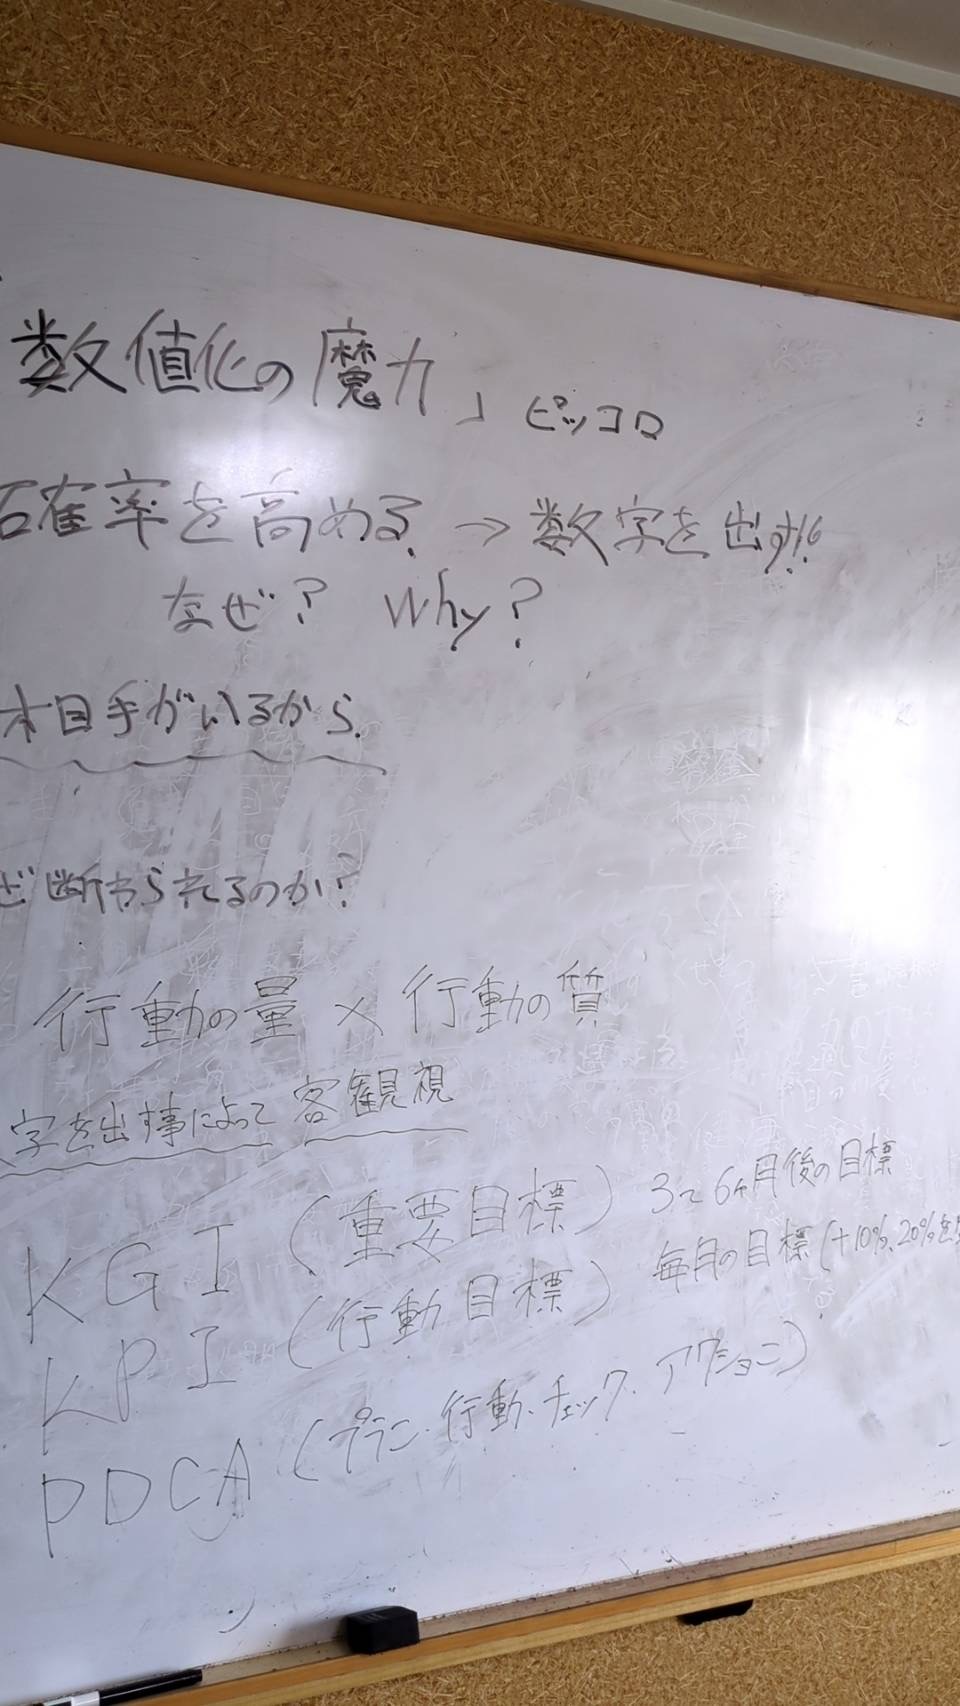 数値化の魔力」 ピッコロ
確率を高める。→ 数字を出す!!
なぜ? Why?
相手がいるから。
ぜ断わられるのか?
行動の量 × 行動の質
字を出す事によって 客観視
KGI (重要目標) 3〜6ヶ月後の目標
KPI (行動目標) 毎月の目標 (+10%、20%を
PDCA (プラン・行動・チェック・アクション)